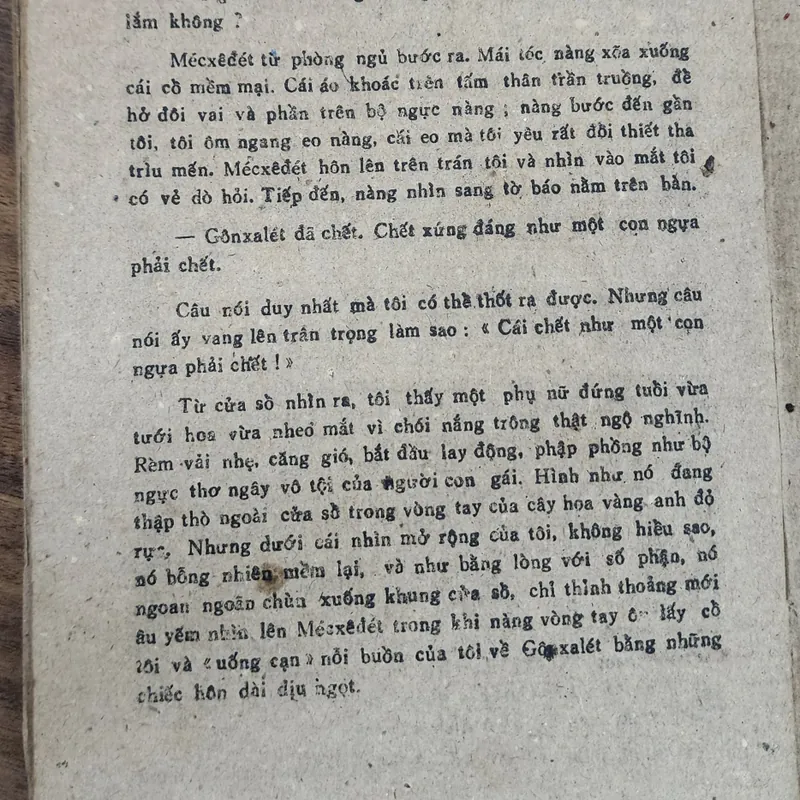 lắm không ?
Mécxêđét từ phòng ngủ bước ra. Mái tóc nàng xõa xuống
cái cổ mềm mại. Cái áo khoác trên tấm thân trần truồng, để
hở đôi vai và phần trên bộ ngực nàng ; nàng bước đến gần
tôi, tôi ôm ngang eo nàng, cái eo mà tôi yêu rất đỗi thiết tha
trìu mến. Mécxêđét hôn lên trên trán tôi và nhìn vào mắt tôi
có vẻ dò hỏi. Tiếp đến, nàng nhìn sang tờ báo nằm trên bàn.
— Gônxalét đã chết. Chết xứng đáng như một con ngựa
phải chết.
Câu nói duy nhất mà tôi có thể thốt ra được. Nhưng câu
nói ấy vang lên trân trọng làm sao : « Cái chết như một con
ngựa phải chết ! »
Từ cửa sổ nhìn ra, tôi thấy một phụ nữ đứng tuổi vừa
tưới hoa vừa nheo mắt vì chói nắng trông thật ngộ nghĩnh.
Rèm vải nhẹ, căng gió, bắt đầu lay động, phập phồng như bộ
ngực thơ ngây vô tội của người con gái. Hình như nó đang
thập thò ngoài cửa sổ trong vòng tay của cây hoa vàng anh đỏ
Nhưng dưới cái nhìn mở rộng của tôi, không hiểu sao,
nó bỗng nhiên mềm lại, và như bằng lòng với số phận, nó
ngoan ngoãn chùn xuống khung cửa sổ, chỉ thỉnh thoảng mới
âu yếm nhìn lên Mécxêđét trong khi nàng vòng tay lấy cổ
tôi và « uống cạn » nỗi buồn của tôi về Gônxalét bằng những
chiếc hôn dài dịu ngọt.